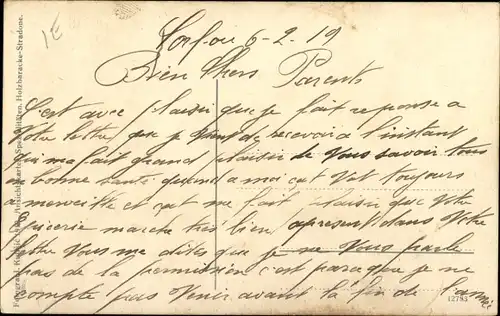 Corfou 6-2-19
Bien Chers Parents
C'est avec plaisir que je fait reponse a
Votre lettre que je vient de recevoir a l'instant
qui ma fait grand plaisir de Vous savoir tous
en bonne santé quand a moi ça Vat toujours
a merveille et ça me fait plaisir que Votre
épicerie marche très bien apresent dans Votre
lettre Vous me dites que je ne Vous parle
pas de la permission c'est parce que je ne
compte pas Venir avant la fin de l'année
12793
Holzbaracke-Stradone.